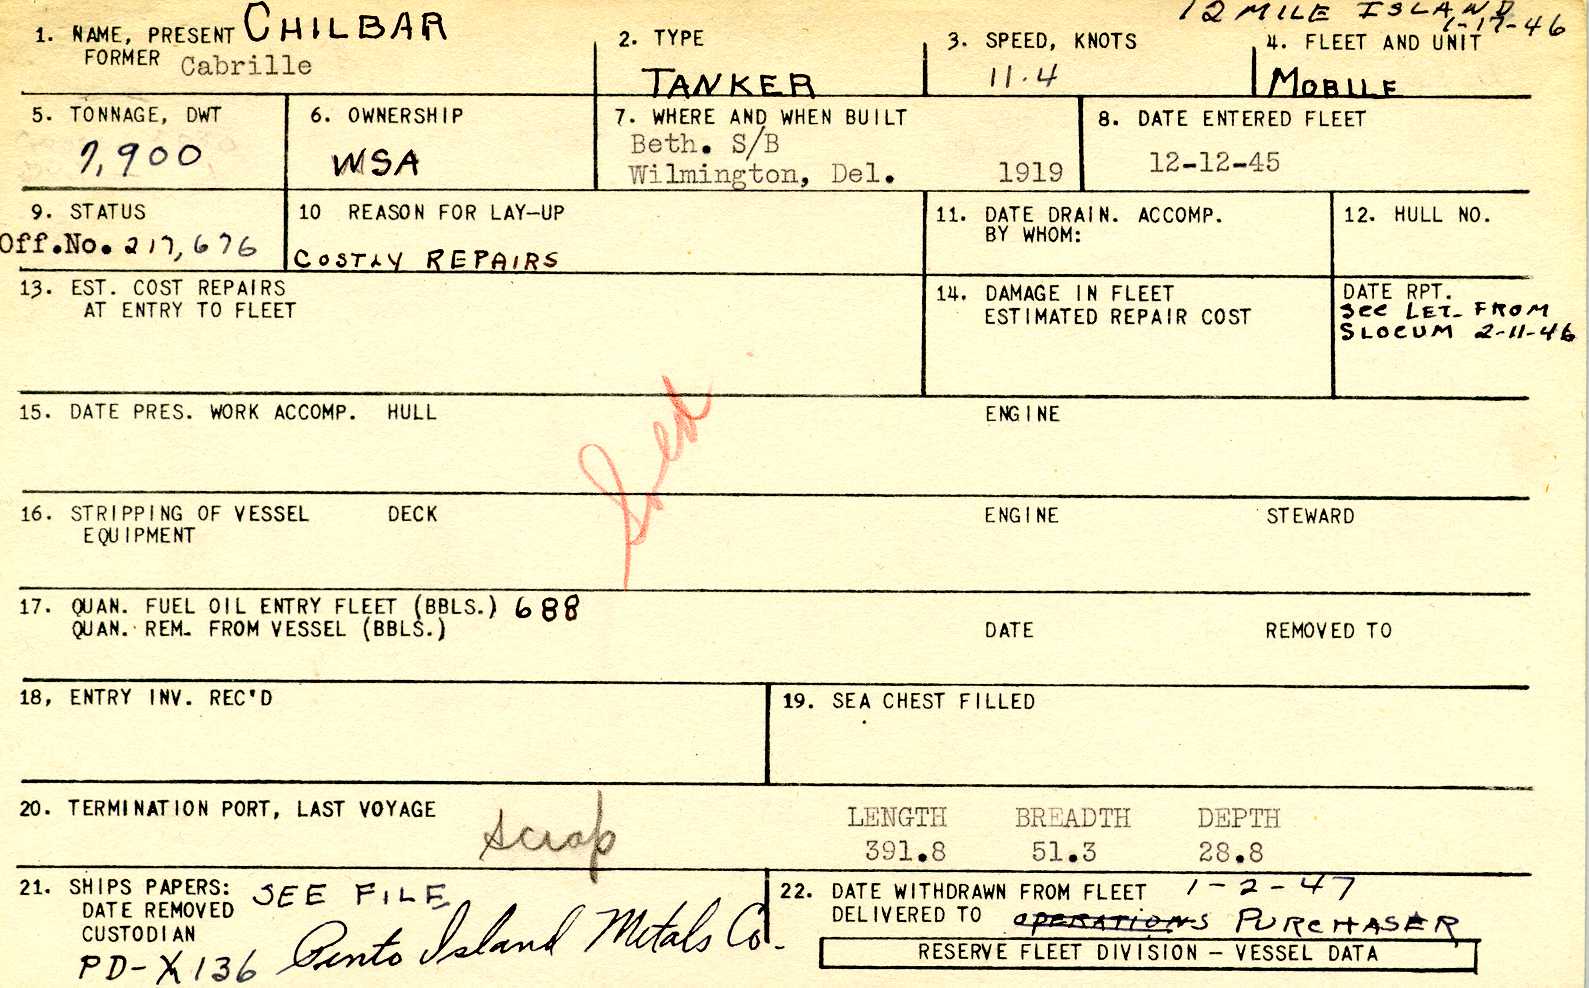 12 MILE ISLAND
1-17-46
1. NAME, PRESENT CHILBAR
FORMER Cabrille
2. TYPE
TANKER
3. SPEED, KNOTS
11.4
4. FLEET AND UNIT
MOBILE
5. TONNAGE, DWT
7,900
6. OWNERSHIP
WSA
7. WHERE AND WHEN BUILT
Beth. S/B
Wilmington, Del. 1919
8. DATE ENTERED FLEET
12-12-45
9. STATUS
Off.No. 217,676
10 REASON FOR LAY-UP
COSTLY REPAIRS
11. DATE DRAIN. ACCOMP.
BY WHOM:
12. HULL NO.
13. EST. COST REPAIRS
AT ENTRY TO FLEET
14. DAMAGE IN FLEET
ESTIMATED REPAIR COST
DATE RPT.
See LET. FROM
SLOCUM 2-11-46
15. DATE PRES. WORK ACCOMP. HULL ENGINE
16. STRIPPING OF VESSEL DECK ENGINE STEWARD
EQUIPMENT
17. QUAN. FUEL OIL ENTRY FLEET (BBLS.) 688
QUAN. REM. FROM VESSEL (BBLS.) DATE REMOVED TO
18, ENTRY INV. REC'D
19. SEA CHEST FILLED
20. TERMINATION PORT, LAST VOYAGE
Scrap
LENGTH BREADTH DEPTH
391.8 51.3 28.8
21. SHIPS PAPERS: SEE FILE
DATE REMOVED
CUSTODIAN
PD-X 136 Pinto Island Metals Co.
22. DATE WITHDRAWN FROM FLEET 1-2-47
DELIVERED TO OPERATIONS PURCHASER
RESERVE FLEET DIVISION – VESSEL DATA